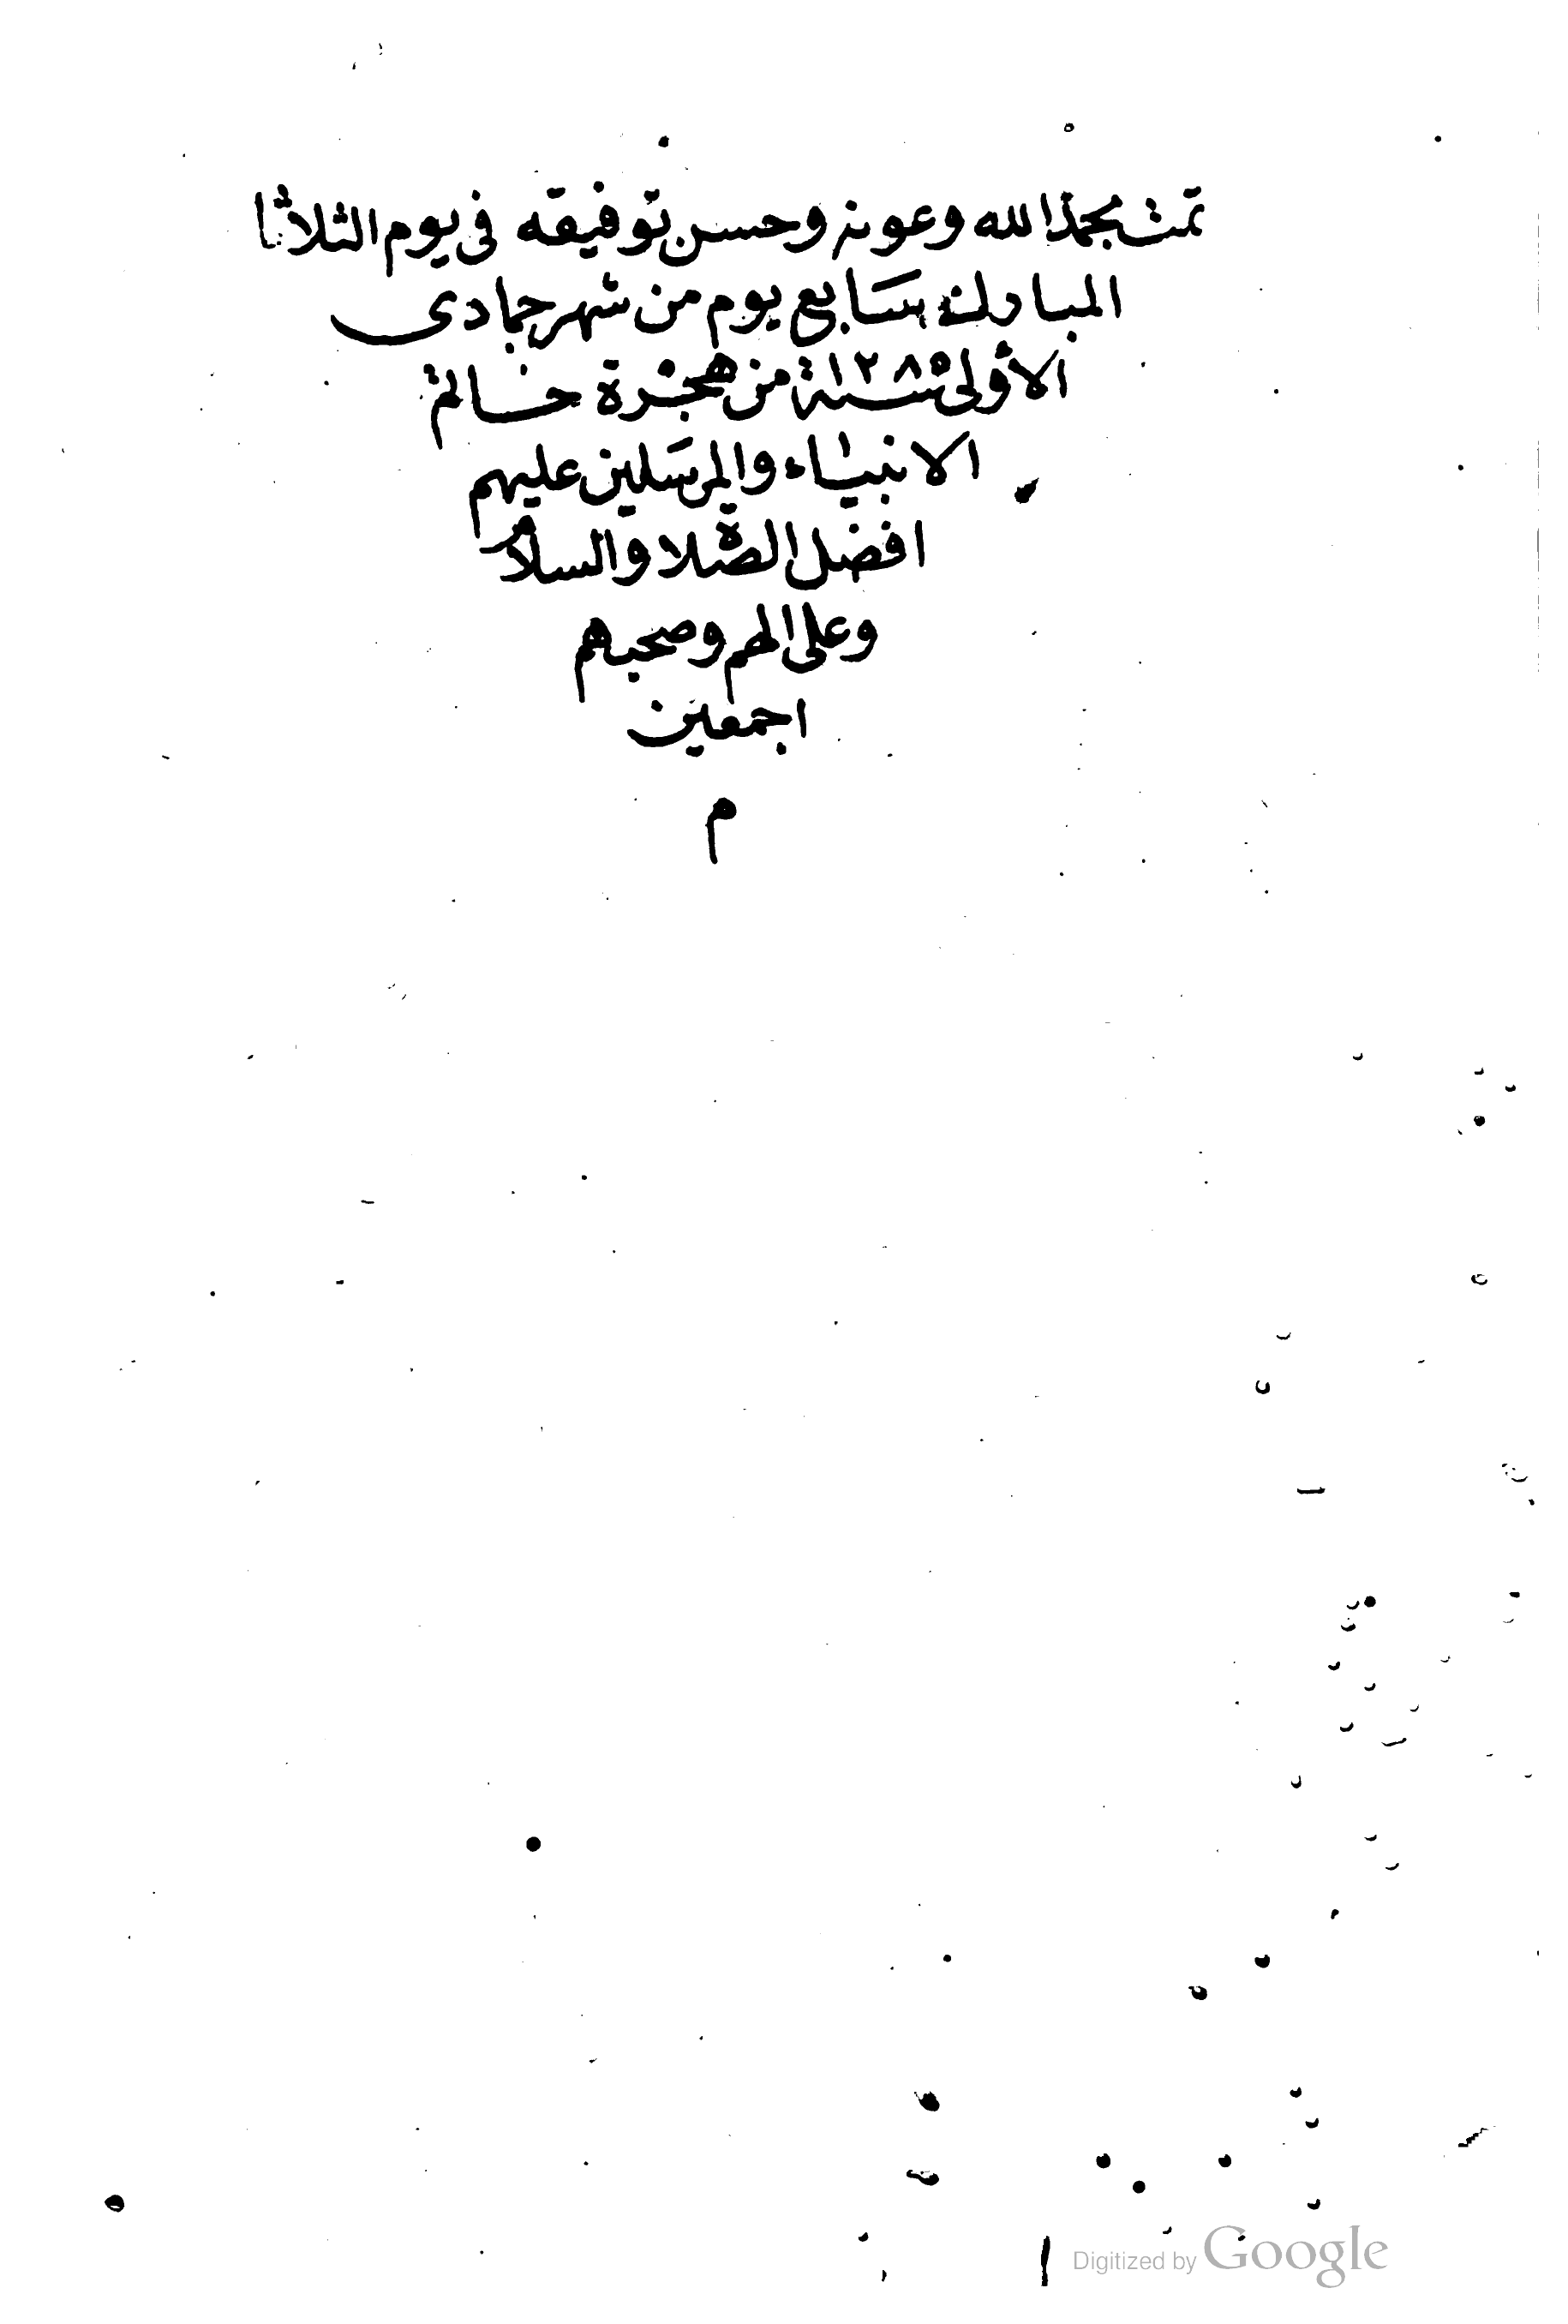 تمت بحمد الله وعونه وحسن توفيقه في يوم الثلاثا
المبارك سابع يوم من شهر جمادى
الأولى سنة ١٢٨٥ من هجرة خاتم
الانبياء والمرسلين عليهم
افضل الصلاة والسلام
وعلى الهم وصحبهم
اجمعين
م
Digitized by Google